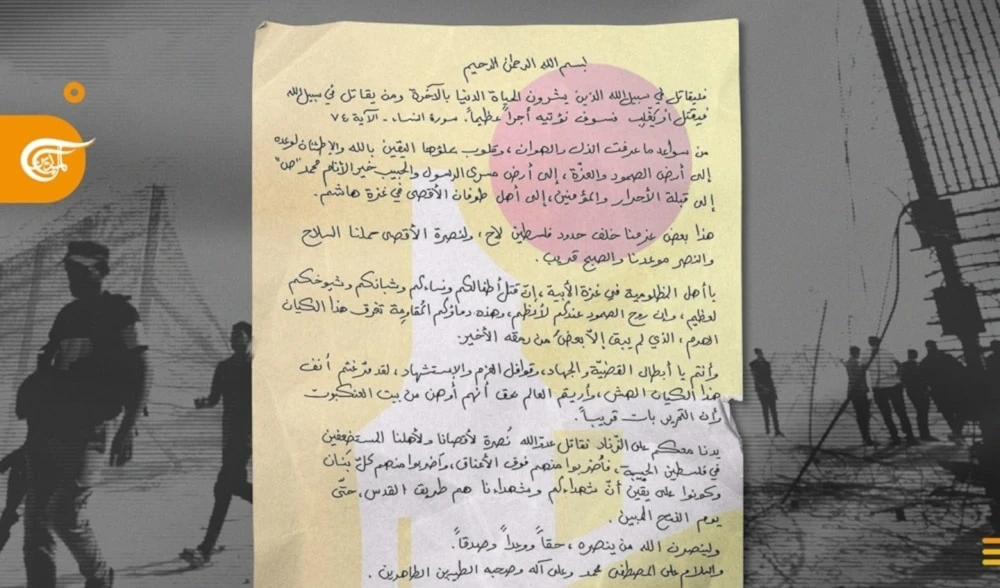 بسم الله الرحمن الرحيم
فليقاتل في سبيل الله الذين يشرون الحياة الدنيا بالآخرة ومن يقاتل في سبيل الله
فيقتل أو يَغْلِب فسوف نؤتيه أجراً عظيماً. سورة النساء - الآية ٧٤
من سواعد ما عرفت الذل والهوان، وقلوب علوها اليقين بالله والاطمئنان لوعده
إلى أرض الصمود والعزّة، إلى أرض مسرى الرسول والحبيب خير الأنام محمد "ص"
إلى قبلة الأحرار والمؤمنين، إلى أهل طوفان الأقصى في غزة هاشم.
هذا بعض عزمنا خلف حدود فلسطين لاح، ولنصرة الأقصى حملنا السلاح
والنصر موعدنا والصبح قريب.
يا أهل المظلومية في غزة الأبية، إنّ قتل أطفالكم ونساءكم وشبانكم وشيوخكم
لعظيم، وإن روح الصمود عندكم لأعظم، وهذه دماؤكم المُقاوِمة تغرق هذا الكيان
الهرم، الذي لم يبق إلّا بعضٌ من رمقه الأخير.
وأنتم يا أبطال القضيّة والجهاد، وقوافل العزم والاستشهاد، لقد مرّغتم أنف
هذا الكيان الهش، وأريتم العالم عن أنهم أوهن من بيت العنكبوت
وأن التحرير بات قريباً.
يدنا معكم على الزّناد نقاتل عدوّ الله نُصرة لأقصانا ولأهلنا المستضعفين
في فلسطين الحبيبة، فأضربوا منهم فوق الأعناق، وأضربوا منهم كلّ بنان
وكونوا على يقين أنّ شهداءكم وشهداءنا هم طريق القدس، حتّى
يوم الفتح المبين.
ولينصرن الله من ينصره، حقاً ووعداً وصدقاً.
والسلام على المصطفى محمد وعلى آله وصحبه الطيبين الطاهرين.